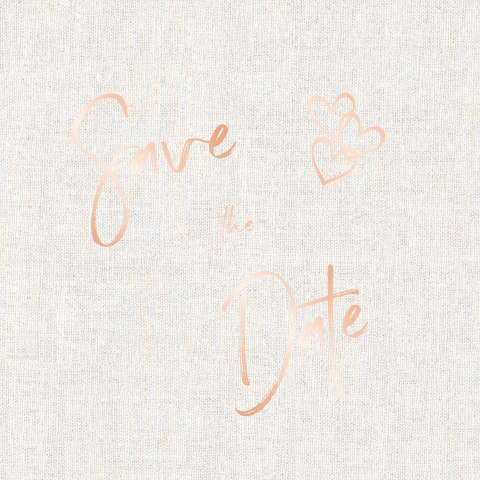 Save
the
Date